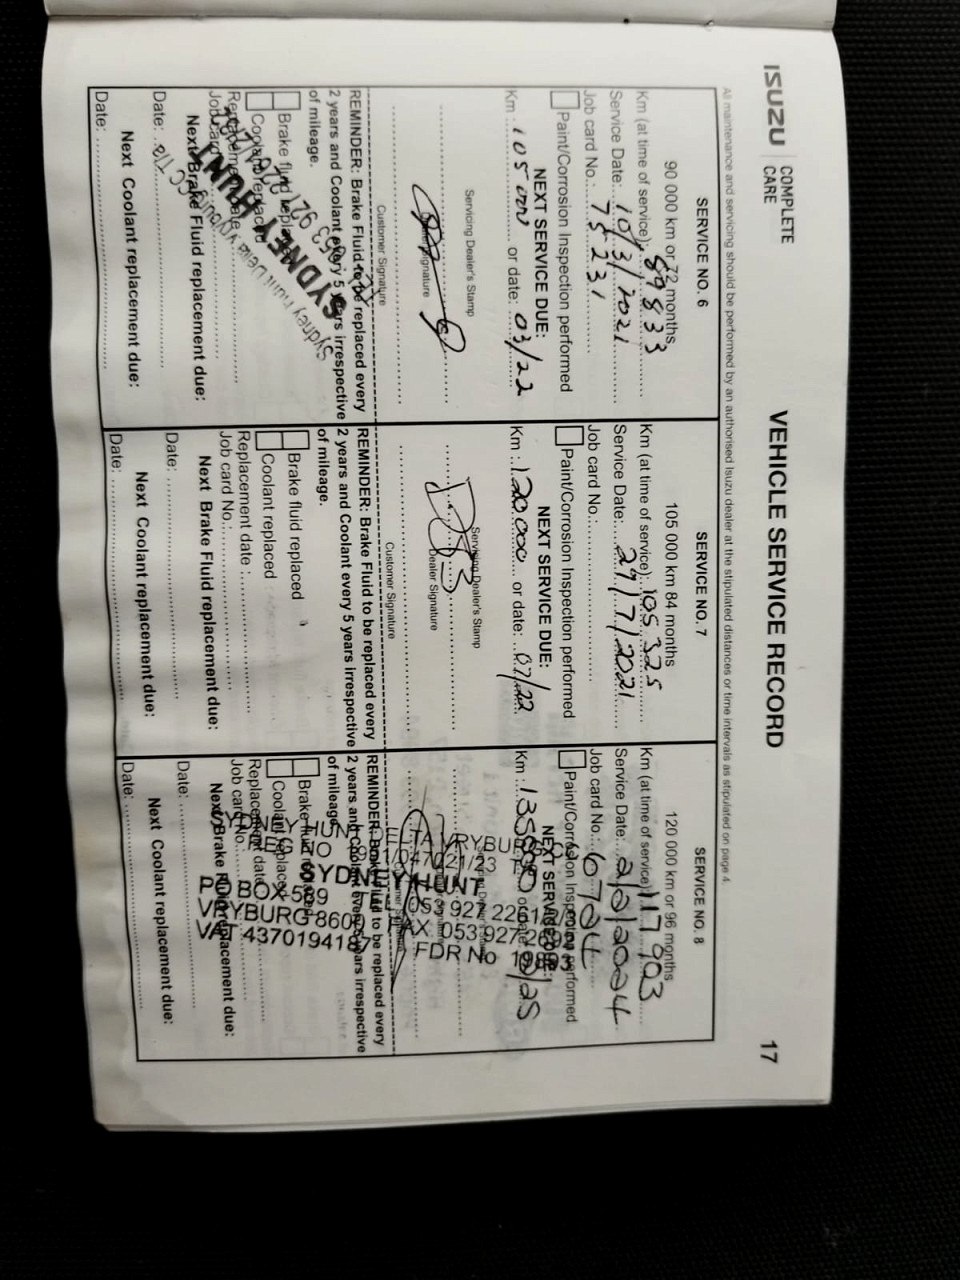 ISUZU
COMPLETE
CARE
VEHICLE SERVICE RECORD
17
All maintenance and servicing should be performed by an authorised Isuzu dealer at the stipulated distances or time intervals as stipulated on page 4.
SERVICE NO. 6
90 000 km or 72 months
Km (at time of service): 89833
Service Date: 10/3/2021
Job card No.: 75231
Paint/Corrosion Inspection performed
NEXT SERVICE DUE:
Km : 105000 or date: 03/22
Servicing Dealer's Stamp
Dealer Signature
Customer Signature
REMINDER: Brake Fluid to be replaced every
2 years and Coolant every 5 years irrespective
of mileage.
Brake fluid replaced
Coolant replaced
Replacement date
Job card No.
Next Brake Fluid replacement due:
Date:
Next Coolant replacement due:
Date:
SYDNEY HUNT
SERVICE NO. 7
105 000 km 84 months
Km (at time of service): 105325
Service Date: 29/7/2021
Job card No.:
Paint/Corrosion Inspection performed
NEXT SERVICE DUE:
Km : 120.000 or date: 07/22
Servicing Dealer's Stamp
Dealer Signature
Customer Signature
REMINDER: Brake Fluid to be replaced every
2 years and Coolant every 5 years irrespective
of mileage.
Brake fluid replaced
Coolant replaced
Replacement date :
Job card No.:
Next Brake Fluid replacement due:
Date:
Next Coolant replacement due:
Date:
SERVICE NO. 8
120 000 km or 96 months
Km (at time of service): 117993
Service Date:
Job card No.: 6
Paint/Corrosion Inspection performed
NEXT SERVICE DUE:
Km : or date:
REMINDER: Brake Fluid to be replaced every
2 years and Coolant every 5 years irrespective
of mileage.
Brake fluid replaced
Coolant replaced
Replacement date
Job card No.
Next Brake Fluid replacement due:
Date:
Next Coolant replacement due:
Date:
SYDNEY HUNT DELTA VRYBURG
REG NO 047021/23
SYDNEY HUNT
PO BOX 539 053 927 2261/2/3
VRYBURG 8600 FAX 053 927
VAT 437019418 FDR No